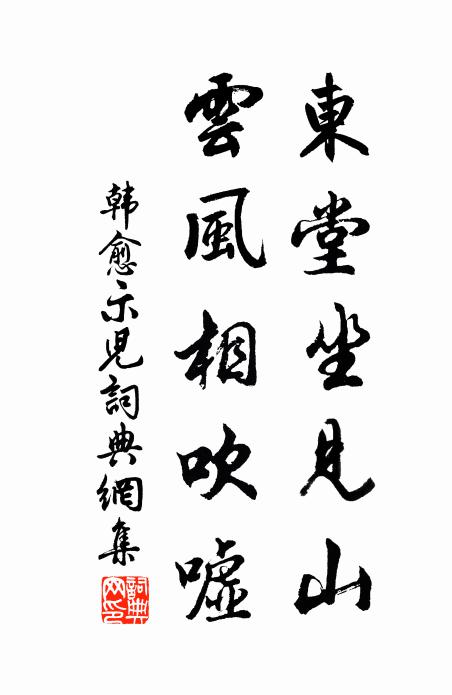 東堂坐見山
雲風相吹噓
韩愈示児詞典網集
詞典網印